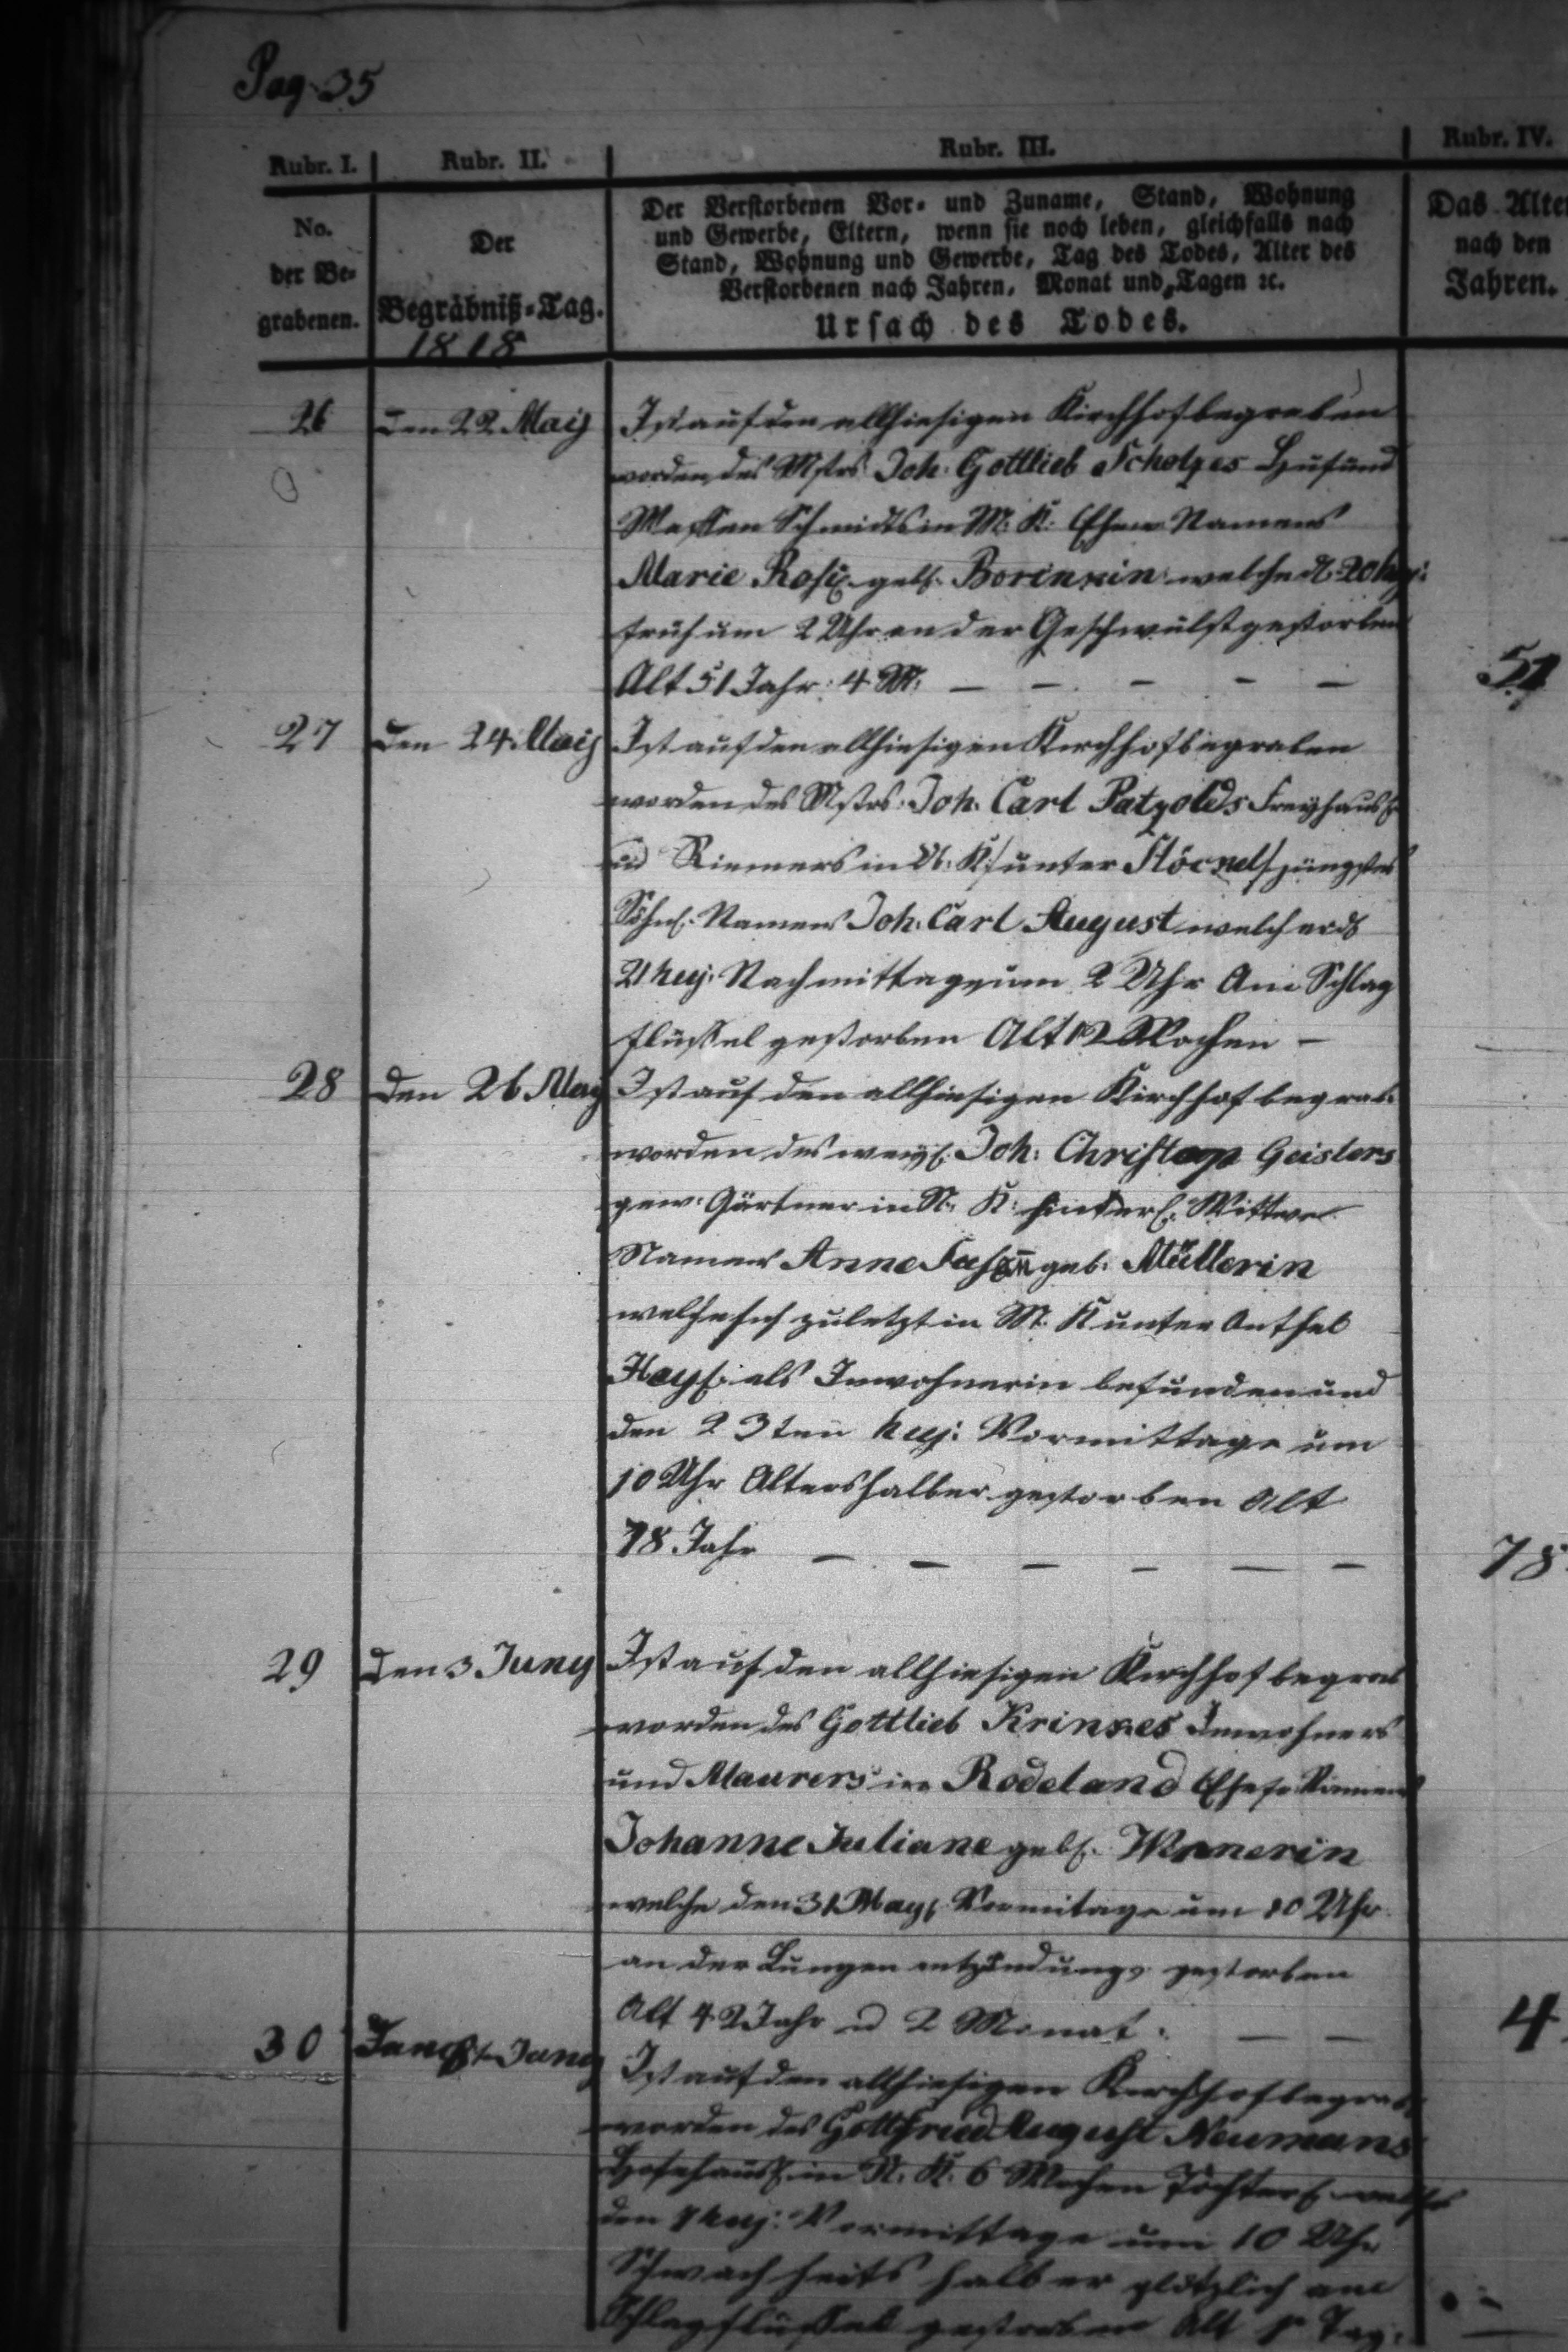 Pag. 35
Rubr. I. Rubr. II. Rubr. III. Rubr. IV.
No. der Be- grabenen.
Der Begräbniß-Tag. 1818
Der Verstorbenen Vor- und Zuname, Stand, Wohnung
und Gewerbe, Eltern, wenn sie noch leben, gleichfalls nach
Stand, Wohnung und Gewerbe, Tag des Todes, Alter des
Verstorbenen nach Jahren, Monat und Tagen ꝛc.
Ursach des Todes.
Das Alter
nach den
Jahren.
26 den 22 May Ist auf den allhiesigen Kirchhof begraben
worden des Mstrs. Joh: Gottlieb Scholzes Huf und
Waffen Schmidts in M: K: Ehew. Namens
Marie Rosi. geb. Borinnin welche d. 20 huj:
früh um 2 Uhr an der Geschwulst gestorben
Alt 51 Jahr: 4 M: — — — — — 51
27 den 24. May Ist auf den allhiesigen Kirchhof begraben
worden des Mstrs. Joh: Carl Patzolds Freyhausl.
und Riemers in K: unter jüngstes
Söhnl. Namens Joh: Carl August welcher d.
21 huj: Nachmittage um 2 Uhr Am Schlag
flussel gestorben Alt 12 Wochen —
28 den 26 May Ist auf den allhiesigen Kirchhof begrab.
worden des weyl. Joh: Christoph Geislers
gew: Gärtner in N: K: hinterl. Wittwe
Namens Anne geb: Müllerin
welche sich zuletzt in M: K unter Antheil
als Inwohnerin befunden und
den 23ten huj: Vormittage um
10 Uhr Altershalber gestorben Alt
78 Jahr — — — — — — 78
29 den 3 Juny Ist auf den allhiesigen Kirchhof begrab
worden des Gottlieb Krinkes Inwohners
und Maurers in Rodeland Ehefr. Namens
Johanne Juliane geb.
welche den 31 May Vormitage um 10 Uhr
an der Lungen entzündung gestorben
Alt 42 Jahr u 2 Monat: — — 4
30 Juny Ist auf den allhiesigen Kirchhof begrab.
worden des Gottfried August Neumans
in N: K: 6 Wochen Töchterl. welche
den 7 huj: Vormittage um 10 Uhr
Schwachheits halber plötzlich am
Schlagflussel gestorben Alt Tag: